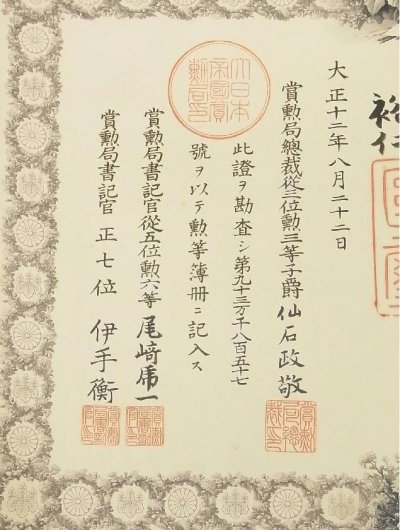 裕仁
大正十二年八月二十二日
賞勲局總裁從三位勲三等子爵 仙石政敬
此證ヲ勘査シ第九十三万千八百五十七
號ヲ以テ勲等簿册ニ記入ス
大日本帝國賞勲局印
賞勲局書記官從五位勲六等 尾﨑乕一
賞勲局書記官 正七位 伊手衡